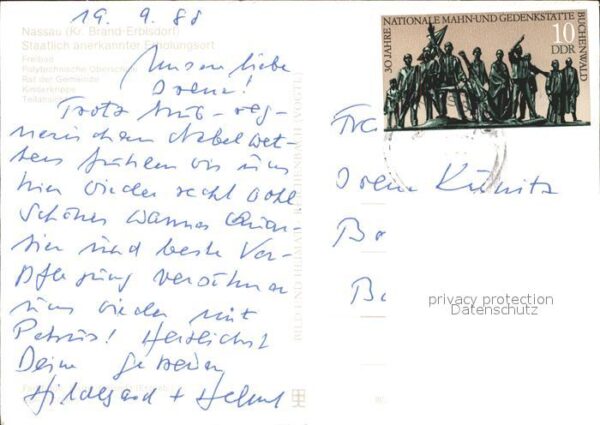 19. 9. 88
Nassau (Kr. Brand-Erbisdorf)
Staatlich anerkannter Erholungsort
Freibad
Polytechnische Oberschule
Rat der Gemeinde
Kinderkrippe
Unsere liebe
Irene!
Trotz trüb-reg-
nerischem Nebelwet-
ters fühlen wir uns
hier wieder recht wohl
Schönes warmes Quar-
tier und beste Ver-
pflegung versöhnen
uns wieder mit
Petrus! Herzlichst
Deine getreuen
Hildegard + Helmut
BILD UND HEIMAT REICHENBACH (VOGTL)
30 JAHRE NATIONALE MAHN-UND GEDENKSTÄTTE BUCHENWALD
10
DDR
Irene Künitz
privacy protection
Datenschutz